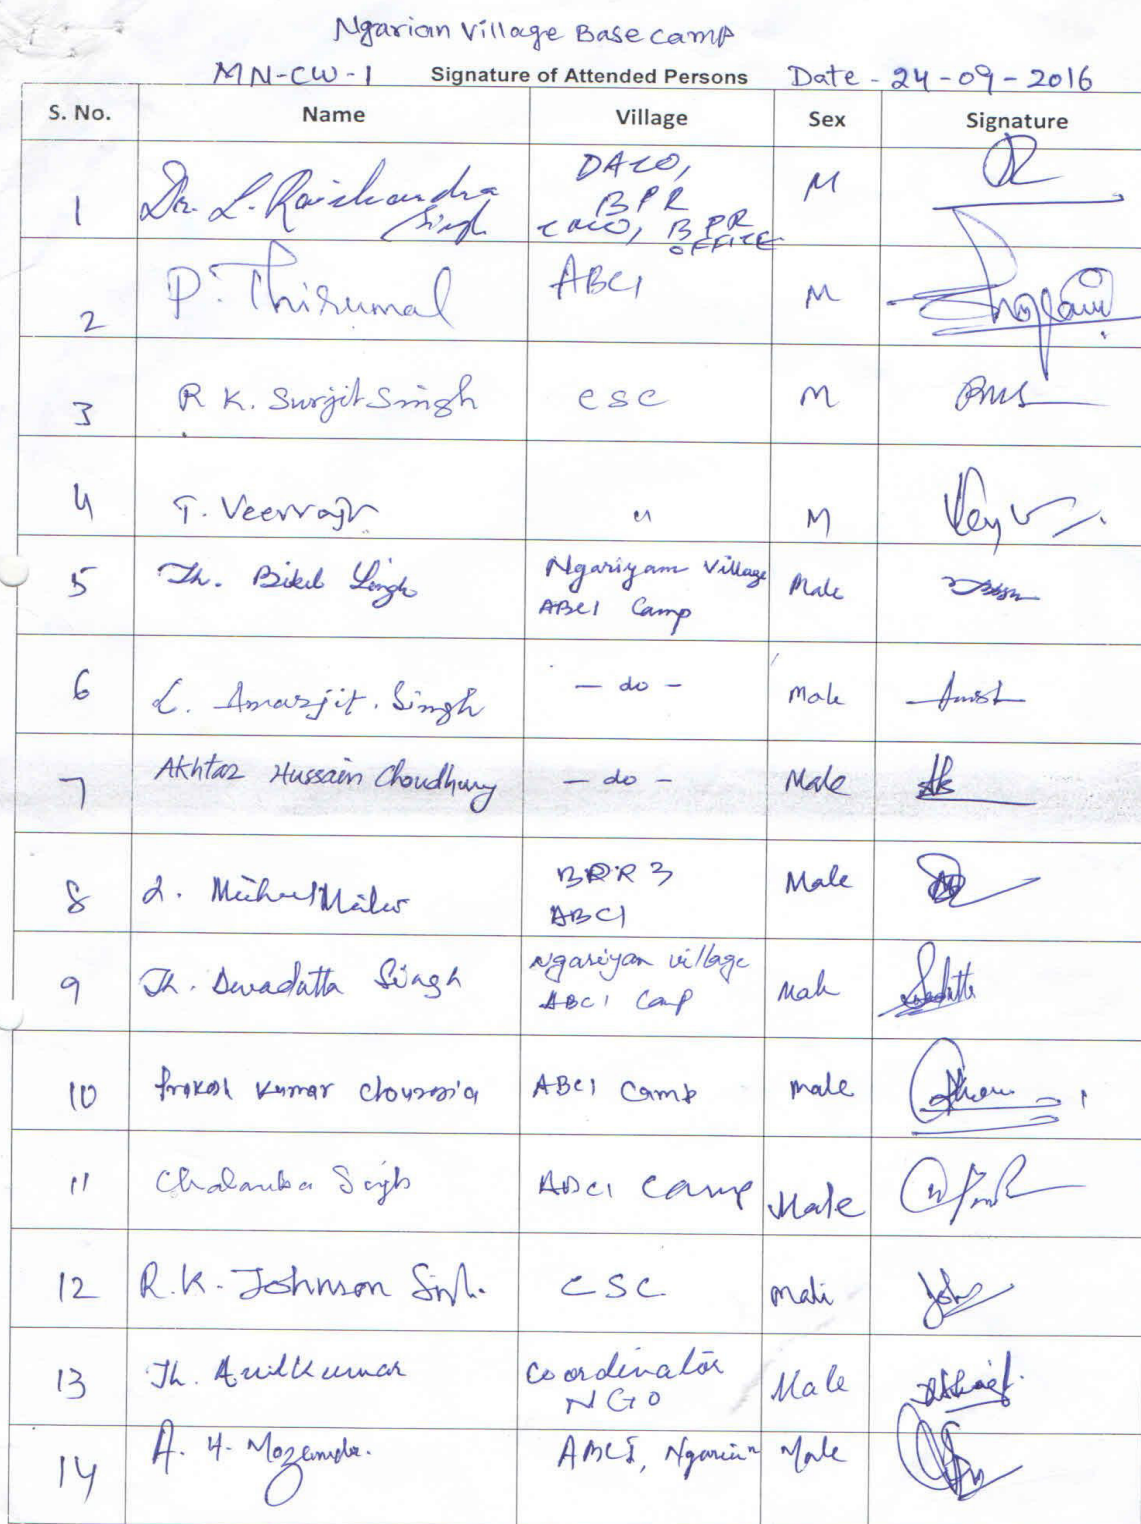 Ngarian Village Base camp
MN-CW-1 Signature of Attended Persons Date - 24-09-2016
S. No. Name Village Sex Signature
1 Dr. L. Singh DACO, BPR BPR OFFICE M
2 P. Thirumal ABCI M
3 R K. Surjit Singh CSC M
4 T. Veerraju " M
5 Th. Singh Ngariyam Village ABCI Camp Male
6 L. Amarjit. Singh - do - Male
7 Akhtar Hussain Choudhury - do - Male
8 ABCI Male
9 Th. Devadatta Singh Ngariyan village ABCI Camp Male
10 Prakash Kumar ABCI Camp male
11 Singh ABCI Camp Male
12 R.K. Johnson Singh. CSC Male
13 Th. Anilkumar Coordinator NGO Male
14 A. H. ABCI, Ngarian Male